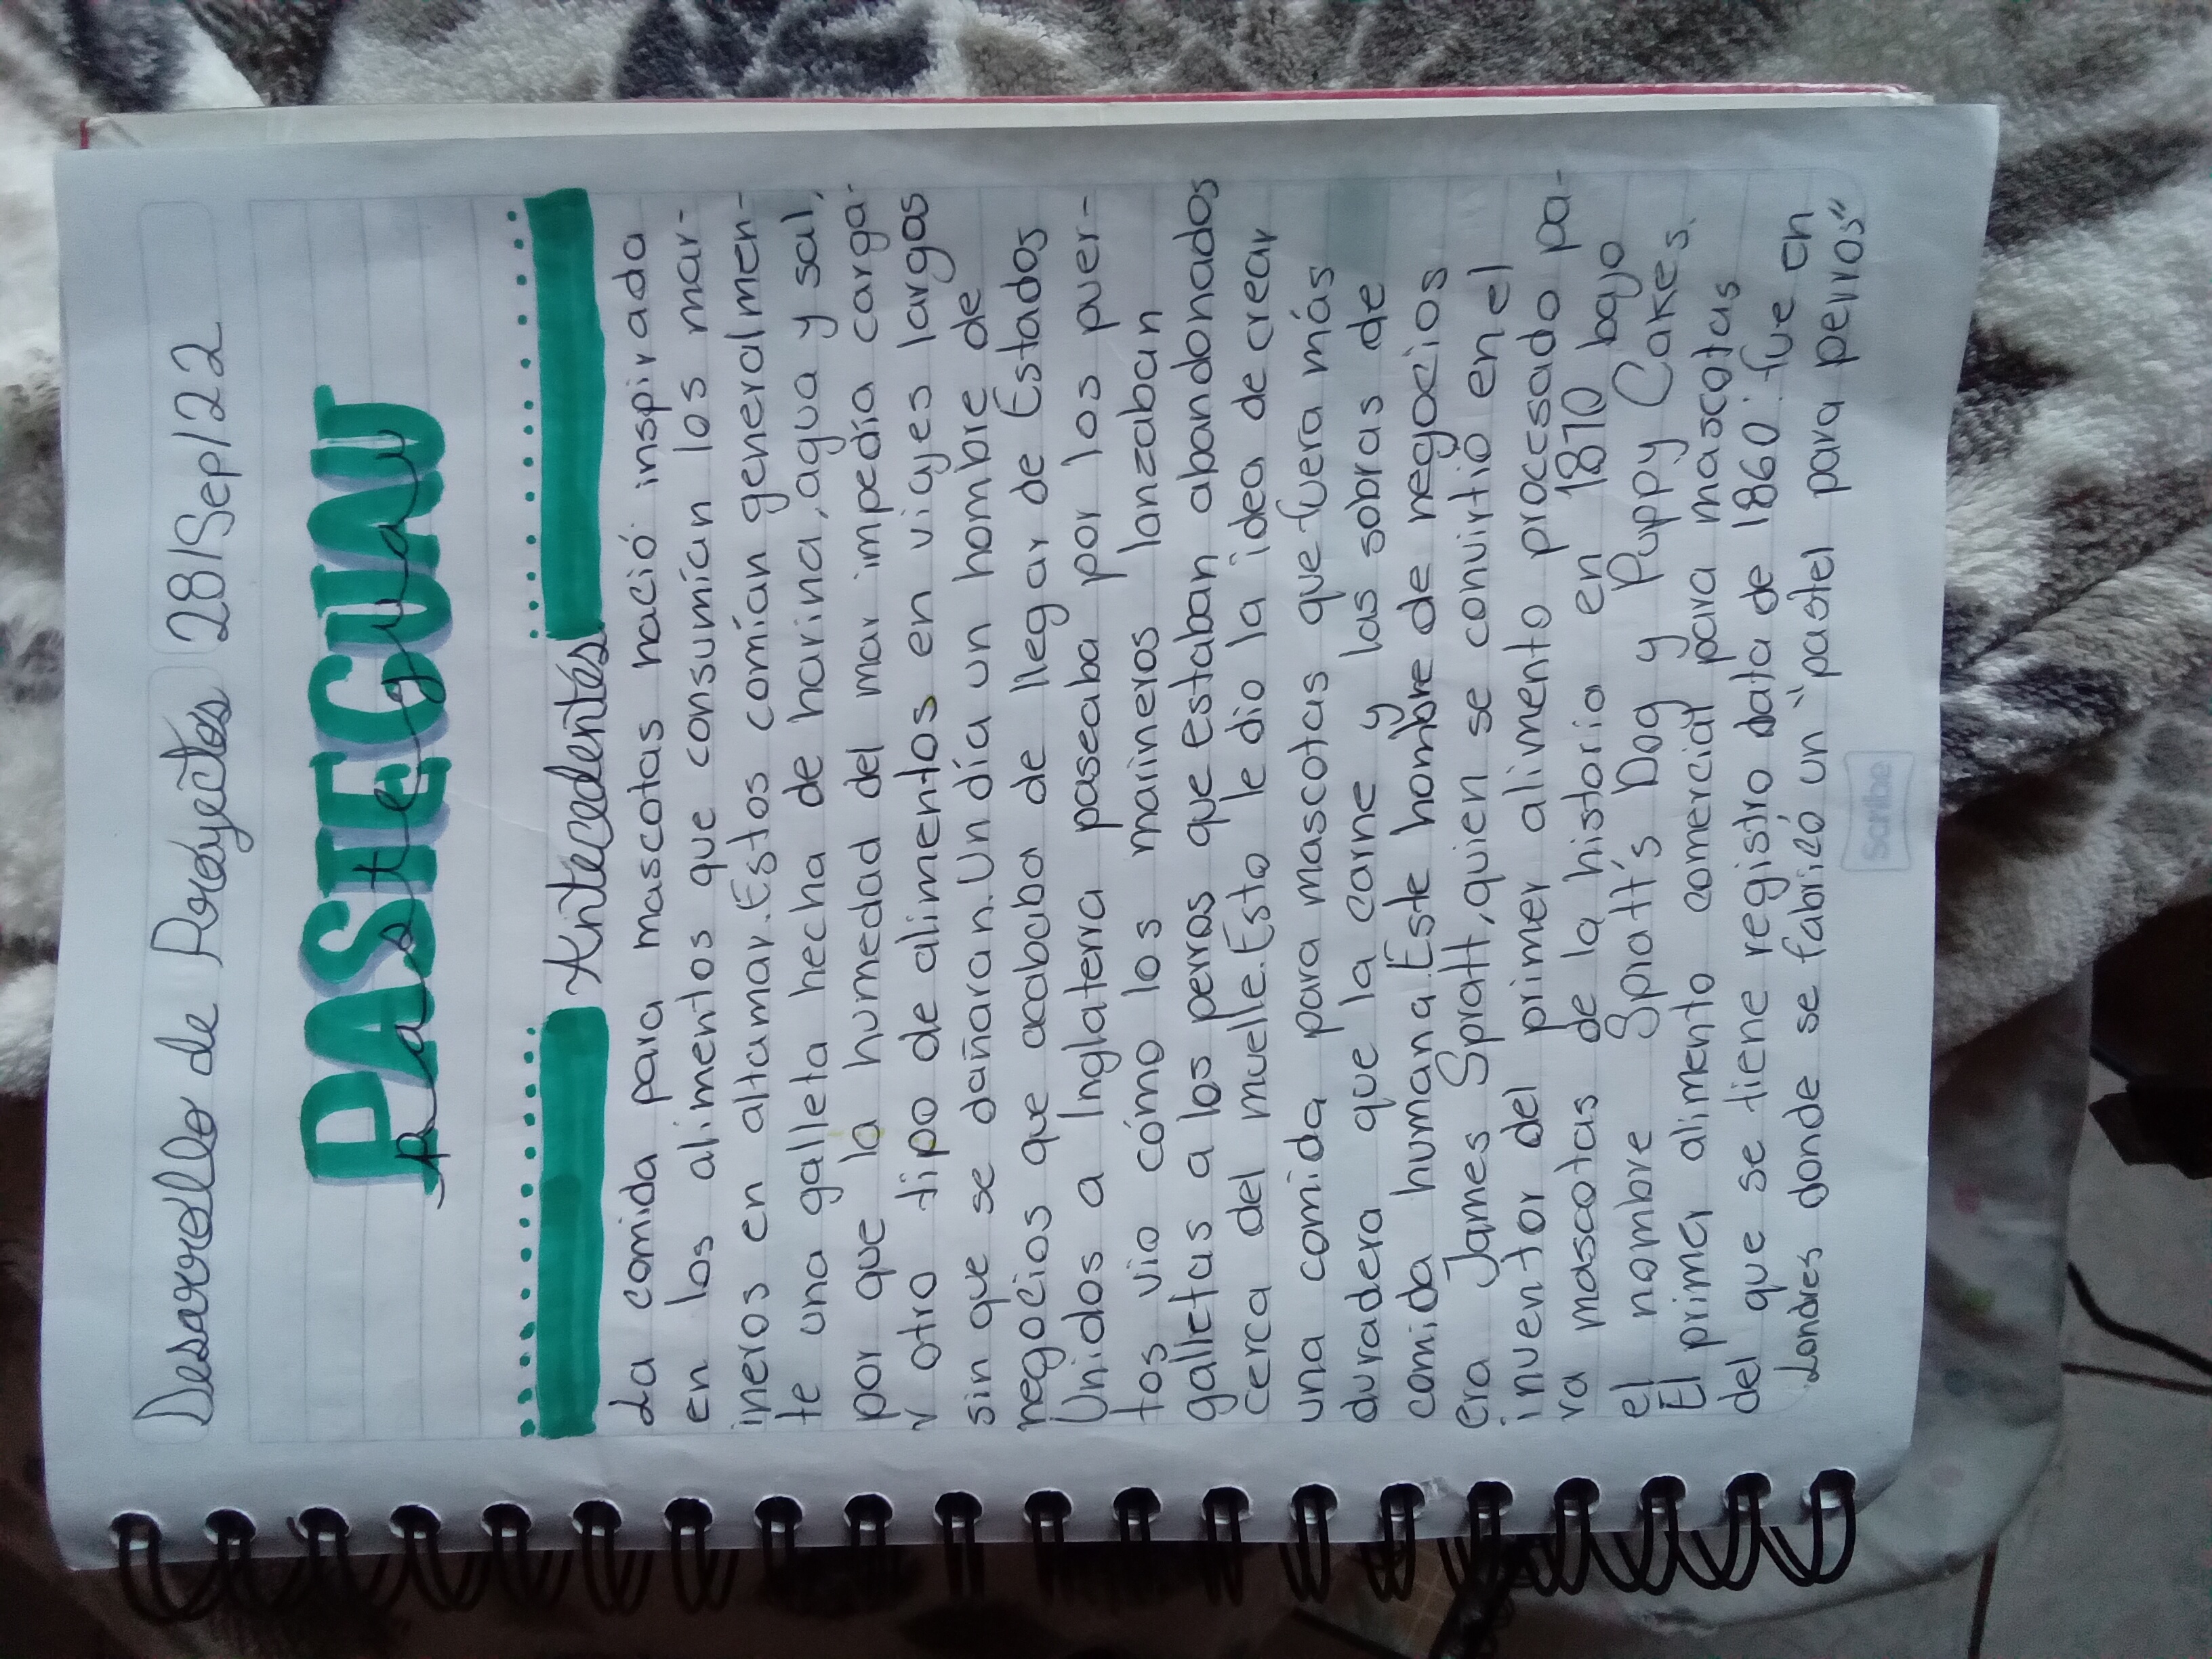 Desarrollo de Proyectos 28/Sep/22
PASTEGUAU
pasteguau
Antecedentes
La comida para mascotas nació inspirada
en los alimentos que consumían los mar-
ineros en altamar. Estos comían generalmen-
te una galleta hecha de harina, agua y sal,
por que la humedad del mar impedía carga-
r otro tipo de alimentos en viajes largos
sin que se dañaran. Un día un hombre de
negocios que acababa de llegar de Estados
Unidos a Inglaterra paseaba por los puer-
tos vio cómo los marineros lanzaban
galletas a los perros que estaban abandonados
cerca del muelle. Esto le dio la idea de crear
una comida para mascotas que fuera más
duradera que la carne y las sobras de
comida humana. Este hombre de negocios
era James Spratt, quien se convirtió en el
inventor del primer alimento procesado pa-
ra mascotas de la historia en 1870 bajo
el nombre Spratt's Dog y Puppy Cakes.
El primer alimento comercial para mascotas
del que se tiene registro data de 1860: fue en
Londres donde se fabricó un "pastel para perros"
Scribe